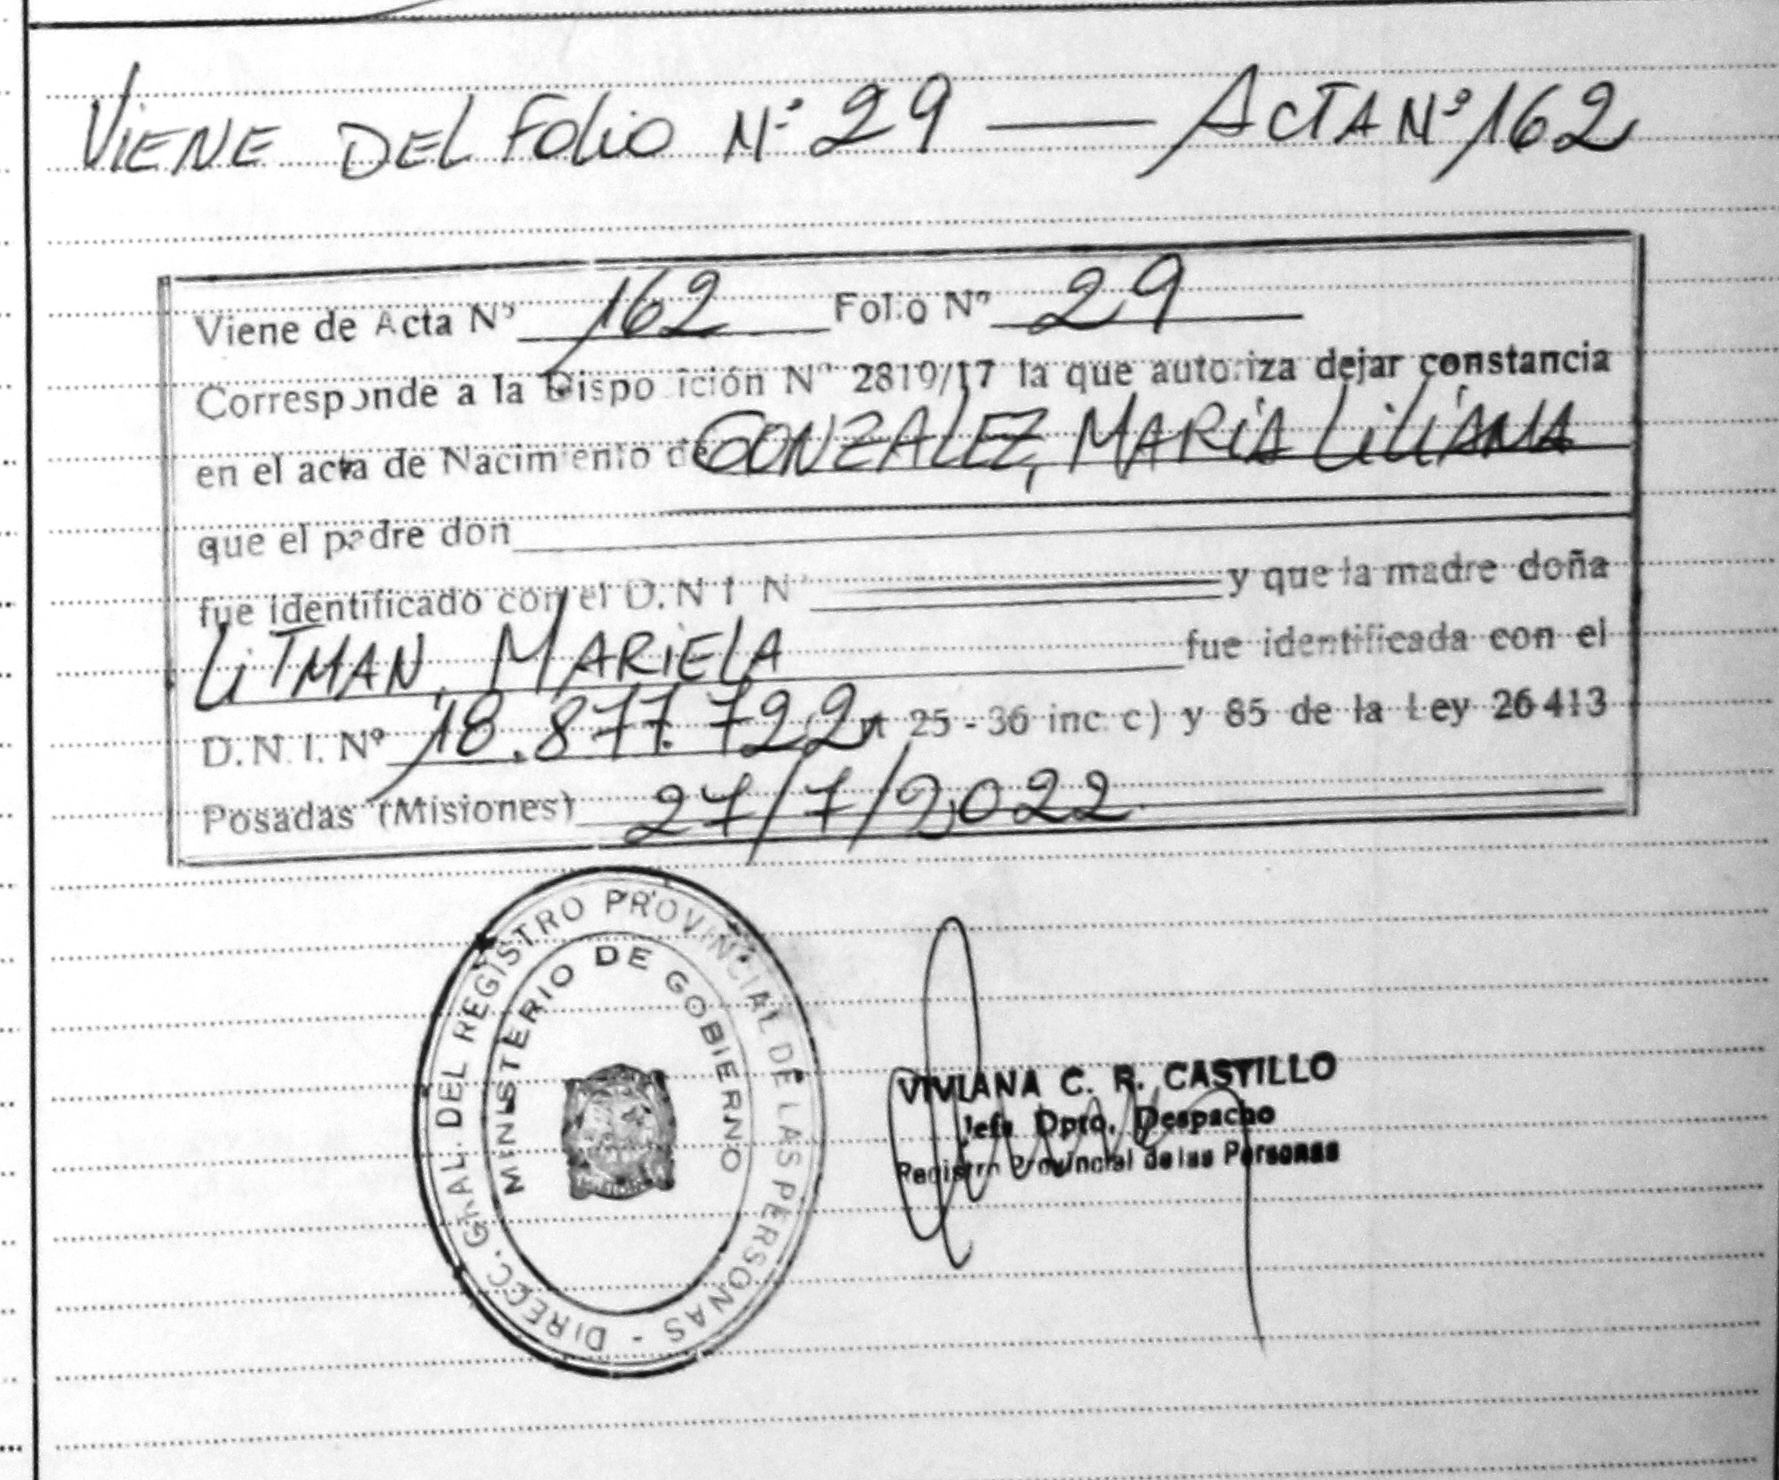 VIENE DEL FOLIO Nº 29 — ACTA Nº 162
Viene de Acta Nº 162 Folio Nº 29
Corresponde a la Disposición Nº 2819/17 la que autoriza dejar constancia
en el acta de Nacimiento de GONZALEZ, MARÍA LILIANA
que el padre don
fue identificado con el D.N.I Nº y que la madre doña
LITMAN, MARIELA fue identificada con el
D.N.I. Nº 18.877.722 25 - 36 inc. c) y 85 de la Ley 26413
Posadas (Misiones) 27/7/2022
DIRECC. GRAL. DEL REGISTRO PROVINCIAL DE LAS PERSONAS -
MINISTERIO DE GOBIERNO
VIVIANA C. R. CASTILLO
Jefe Dpto. Despacho
Registro Provincial de las Personas